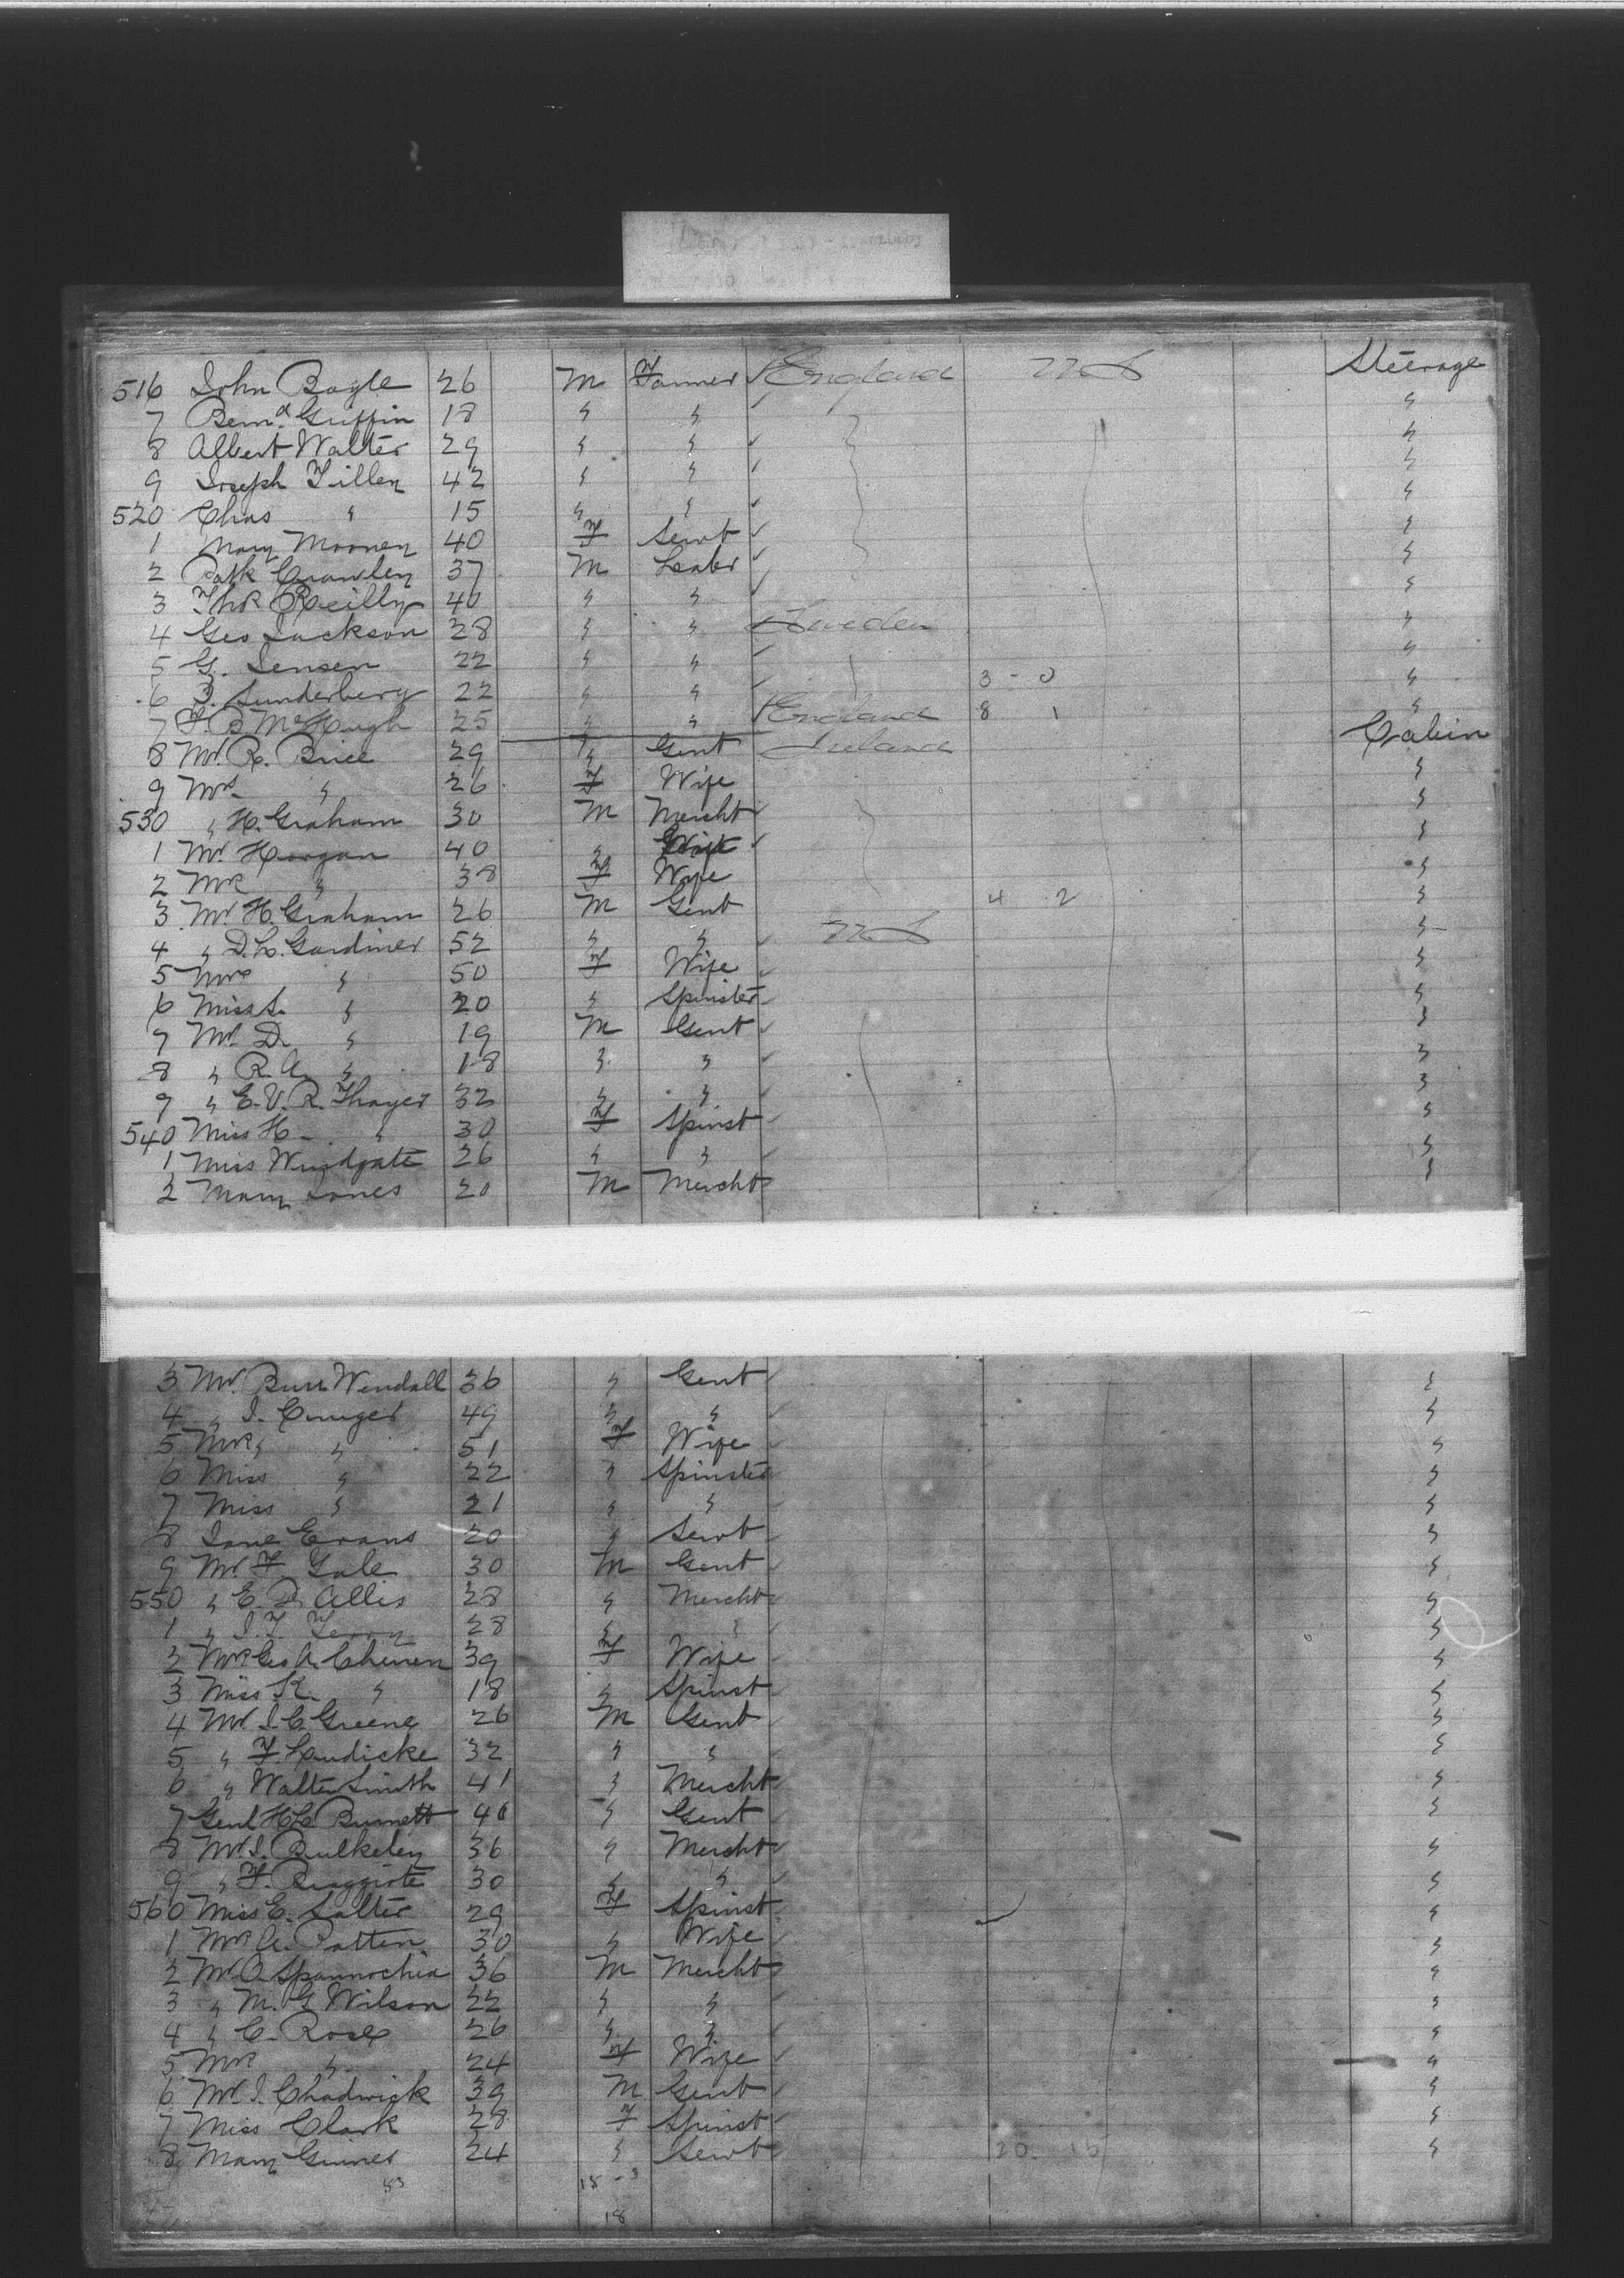 516 John Bogle 26 M Farmer England U S Steerage
7 Bernd Griffin 18 " " "
8 Albert Walter 29 " " "
9 Joseph Tillen 42 " " "
520 Chas " 15 " " "
1 Mary Mooney 40 F Servt "
2 Patk Crowley 37 M Labr "
3 Thos Reilly 40 " " "
4 Geo Jackson 28 " " Sweden "
5 G. Jensen 22 " " "
6 Sunderberg 22 " " 3 - 0 "
7 F. B McHugh 25 " " England 8 1 "
8 Mr. R. Brice 29 " Gent Ireland Cabin
9 Mrs " 26 F Wife "
530 " H. Graham 30 M Mercht "
1 Mr. Horgan 40 " "
2 Mrs " 38 F Wife "
3 Mr H. Graham 26 M Gent 4 2 "
4 " D. L. Gardiner 52 " " U S "
5 Mrs " 50 F Wife "
6 Miss S. " 20 " Spinster "
7 Mr. D. " 19 M Gent "
8 " R. A. " 18 " " "
9 " E. V. R. Thayer 32 " " "
540 Miss H. " 30 F Spinst "
1 Miss Windgate 26 " " "
2 Mary Jones 20 M Mercht "
3 Mr. Burr Wendall 36 " Gent "
4 " J. Cruger 49 " " "
5 Mrs " 51 F Wife "
6 Miss " 22 " Spinster "
7 Miss " 21 " " "
8 Jane Evans 20 " Servt "
9 Mr. F Gale 30 M Gent "
550 " E. D. Allis 28 " Mercht "
1 " J. F. Terry 28 " " "
2 Mrs Geo A. 39 F Wife "
3 Miss K. " 18 " Spinst "
4 Mr J. C. Greene 26 M Gent "
5 " F. 32 " " "
6 " Walter Smith 41 " Mercht "
7 Genl H L Burnett " Gent "
8 Mr. J. Bulkeley 36 " Mercht "
9 " F. 30 " " "
560 Miss E. Salter 29 F Spinst "
1 Mrs A. Patten 30 " Wife "
2 Mr. A. Spannochia 36 M Mercht "
3 " M. G Wilson 22 " " "
4 " C. Rose 26 " " "
5 Mrs " 24 F Wife "
6 Mr. J. Chadwick 39 M Gent "
7 Miss Clark 28 F Spinst "
8 Mary Guines 24 " Servt 20 "
18